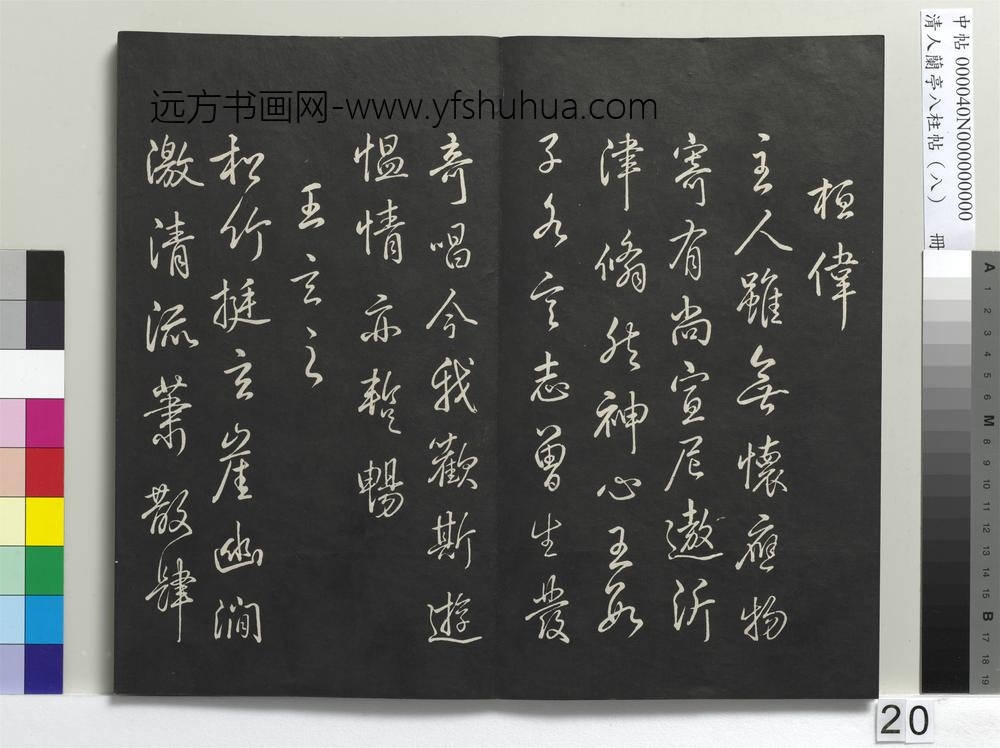 中帖000040N000000000
清人蘭亭八柱帖(八) 冊
远方书画网-www.yfshuhua.com
桓偉
主人雖無懷應物
寄有尚宣尼遨沂
津翛然神心王數
子各言志曾生發
奇唱今我歡斯遊
慍情亦暫暢
王玄之
松竹挺玄崖幽澗
激清流蕭散肆
A 1 2 3 4 5 6 M 8 9 10 11 12 13 14 15 B 17 18 19
20